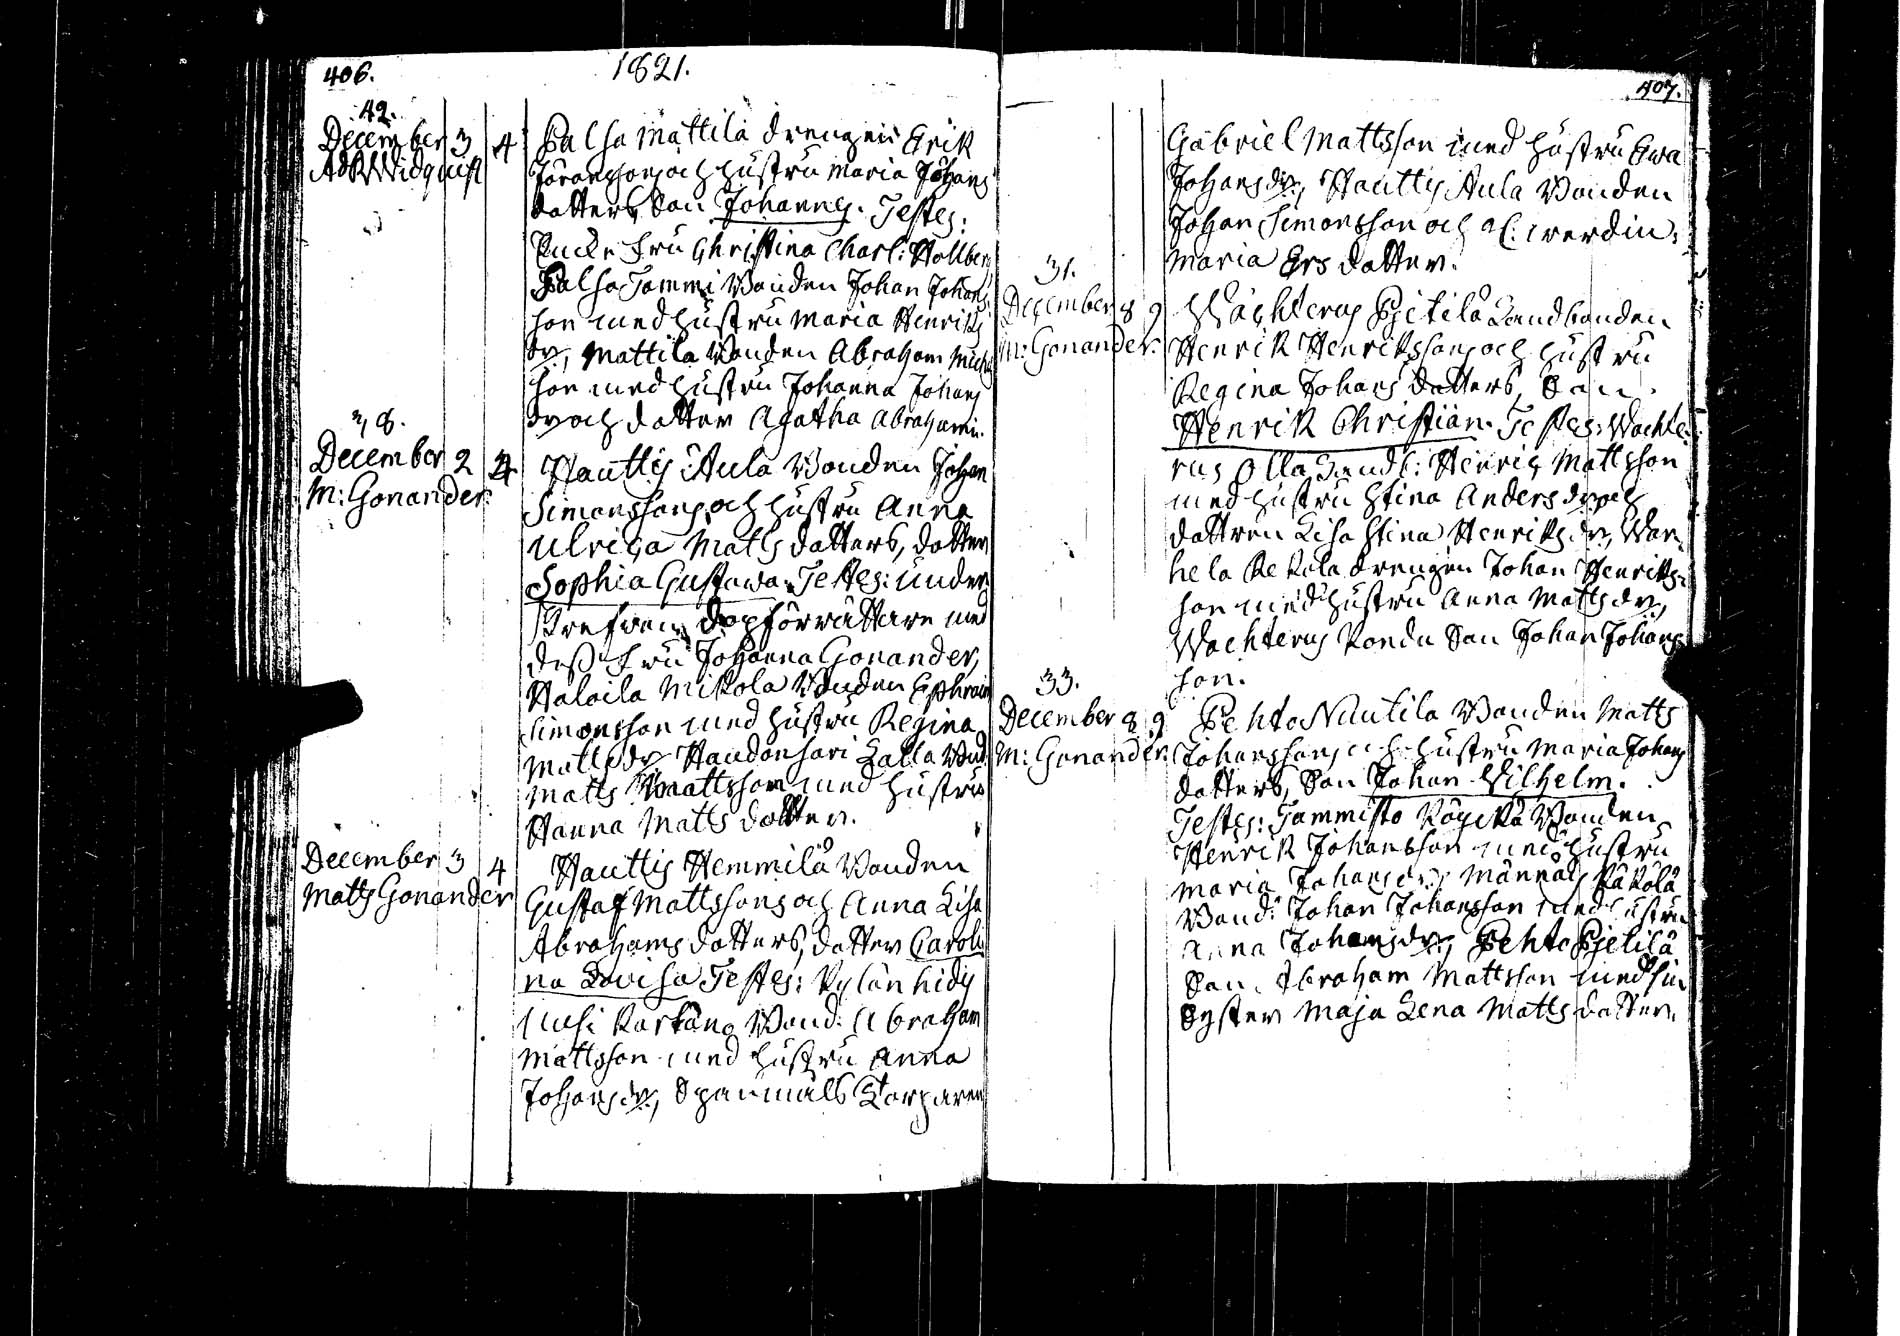 406.
1821.
42.
December 3 4
Ad. Widquist
Palsa Mattila drengen Erik
Göransons och hustru Maria Johans
dotters, Son Johannes. Testes:
Fru Christina Charl: Hollberg
Palsa Tommi Bonden Johan Johans
son med hustru Maria Henriks
dr, Mattila Bonden Abraham Mich
son med hustru Johanna Johans
dr och dotter Agatha Abrahami.
38.
December 2 4
M: Gonander.
Hauttis Aula Bonden Johan
Simonssons och hustru Anna
Ulrica Matts dotters, dotter
Sophia Gustawa. Testes: Under
skrefven dopförrättare med
dess fru Johanna Gonander,
Haloila Mikola Bonden Ephraim
Simonsson med hustru Regina
Matts dr Haudonsari Lalla Bond
Matts Mattsson med hustru
Hanna Matts dotter.
December 3 4
Matts Gonander
Hauttis Hemmilä Bonden
Gustaf Mattssons och Anna Lisa
Abrahams dotters, dotter Caroli
na Lovisa Testes: Kylänhidis
Uusi Bond: Abraham
Mattsson med hustru Anna
Johans dr, Torparen
407.
Gabriel Mattsson med hustru Ewa
Johans dr, Hauttis Aula Bonden
Johan Simonsson och
Maria Ers dotter.
31.
December 8 9
M: Gonander.
Wächterus Pietilä Landbonden
Henrik Henrikssons och hustru
Regina Johans dotters, Son
Henrik Christian. Testes: Wächte
rus Olla Landb: Henric Mattsson
med hustru Stina Anders dr och
dottren Lisa Stina Henriks dr, War
hela Rekola drengen Johan Henriks
son med hustru Anna Matts dr,
Wächterus Bonde Son Johan Johans
son.
33.
December 8 9
M: Gonander.
Pehto Nuutila Bonden Matts
Johanssons och hustru Maria Johans
dotters, Son Johan Wilhelm.
Testes: Tammisto Bonden
Henrik Johansson med hustru
Maria Johans dr, Männäis
Bond: Johan Johansson med hustru
Anna Johans dr, Pehto Pietilä
Son Abraham Mattsson med sin
Syster Maja Lena Matts dotter.